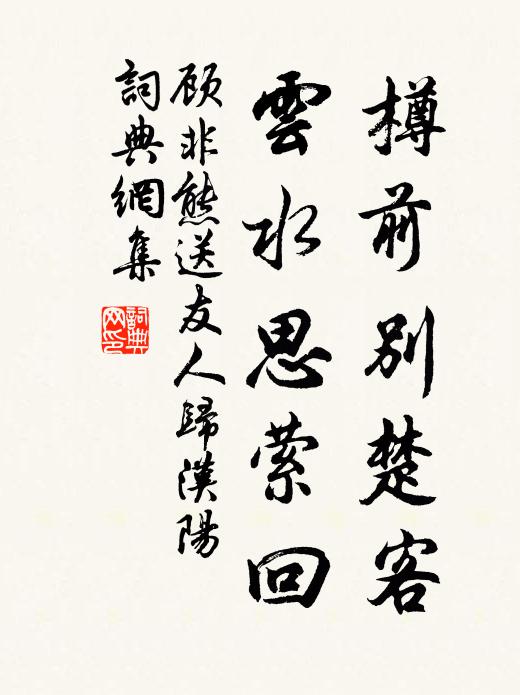 樽前別楚客
雲水思萦回
顾非熊送友人歸漢陽
詞典網集
詞典网印